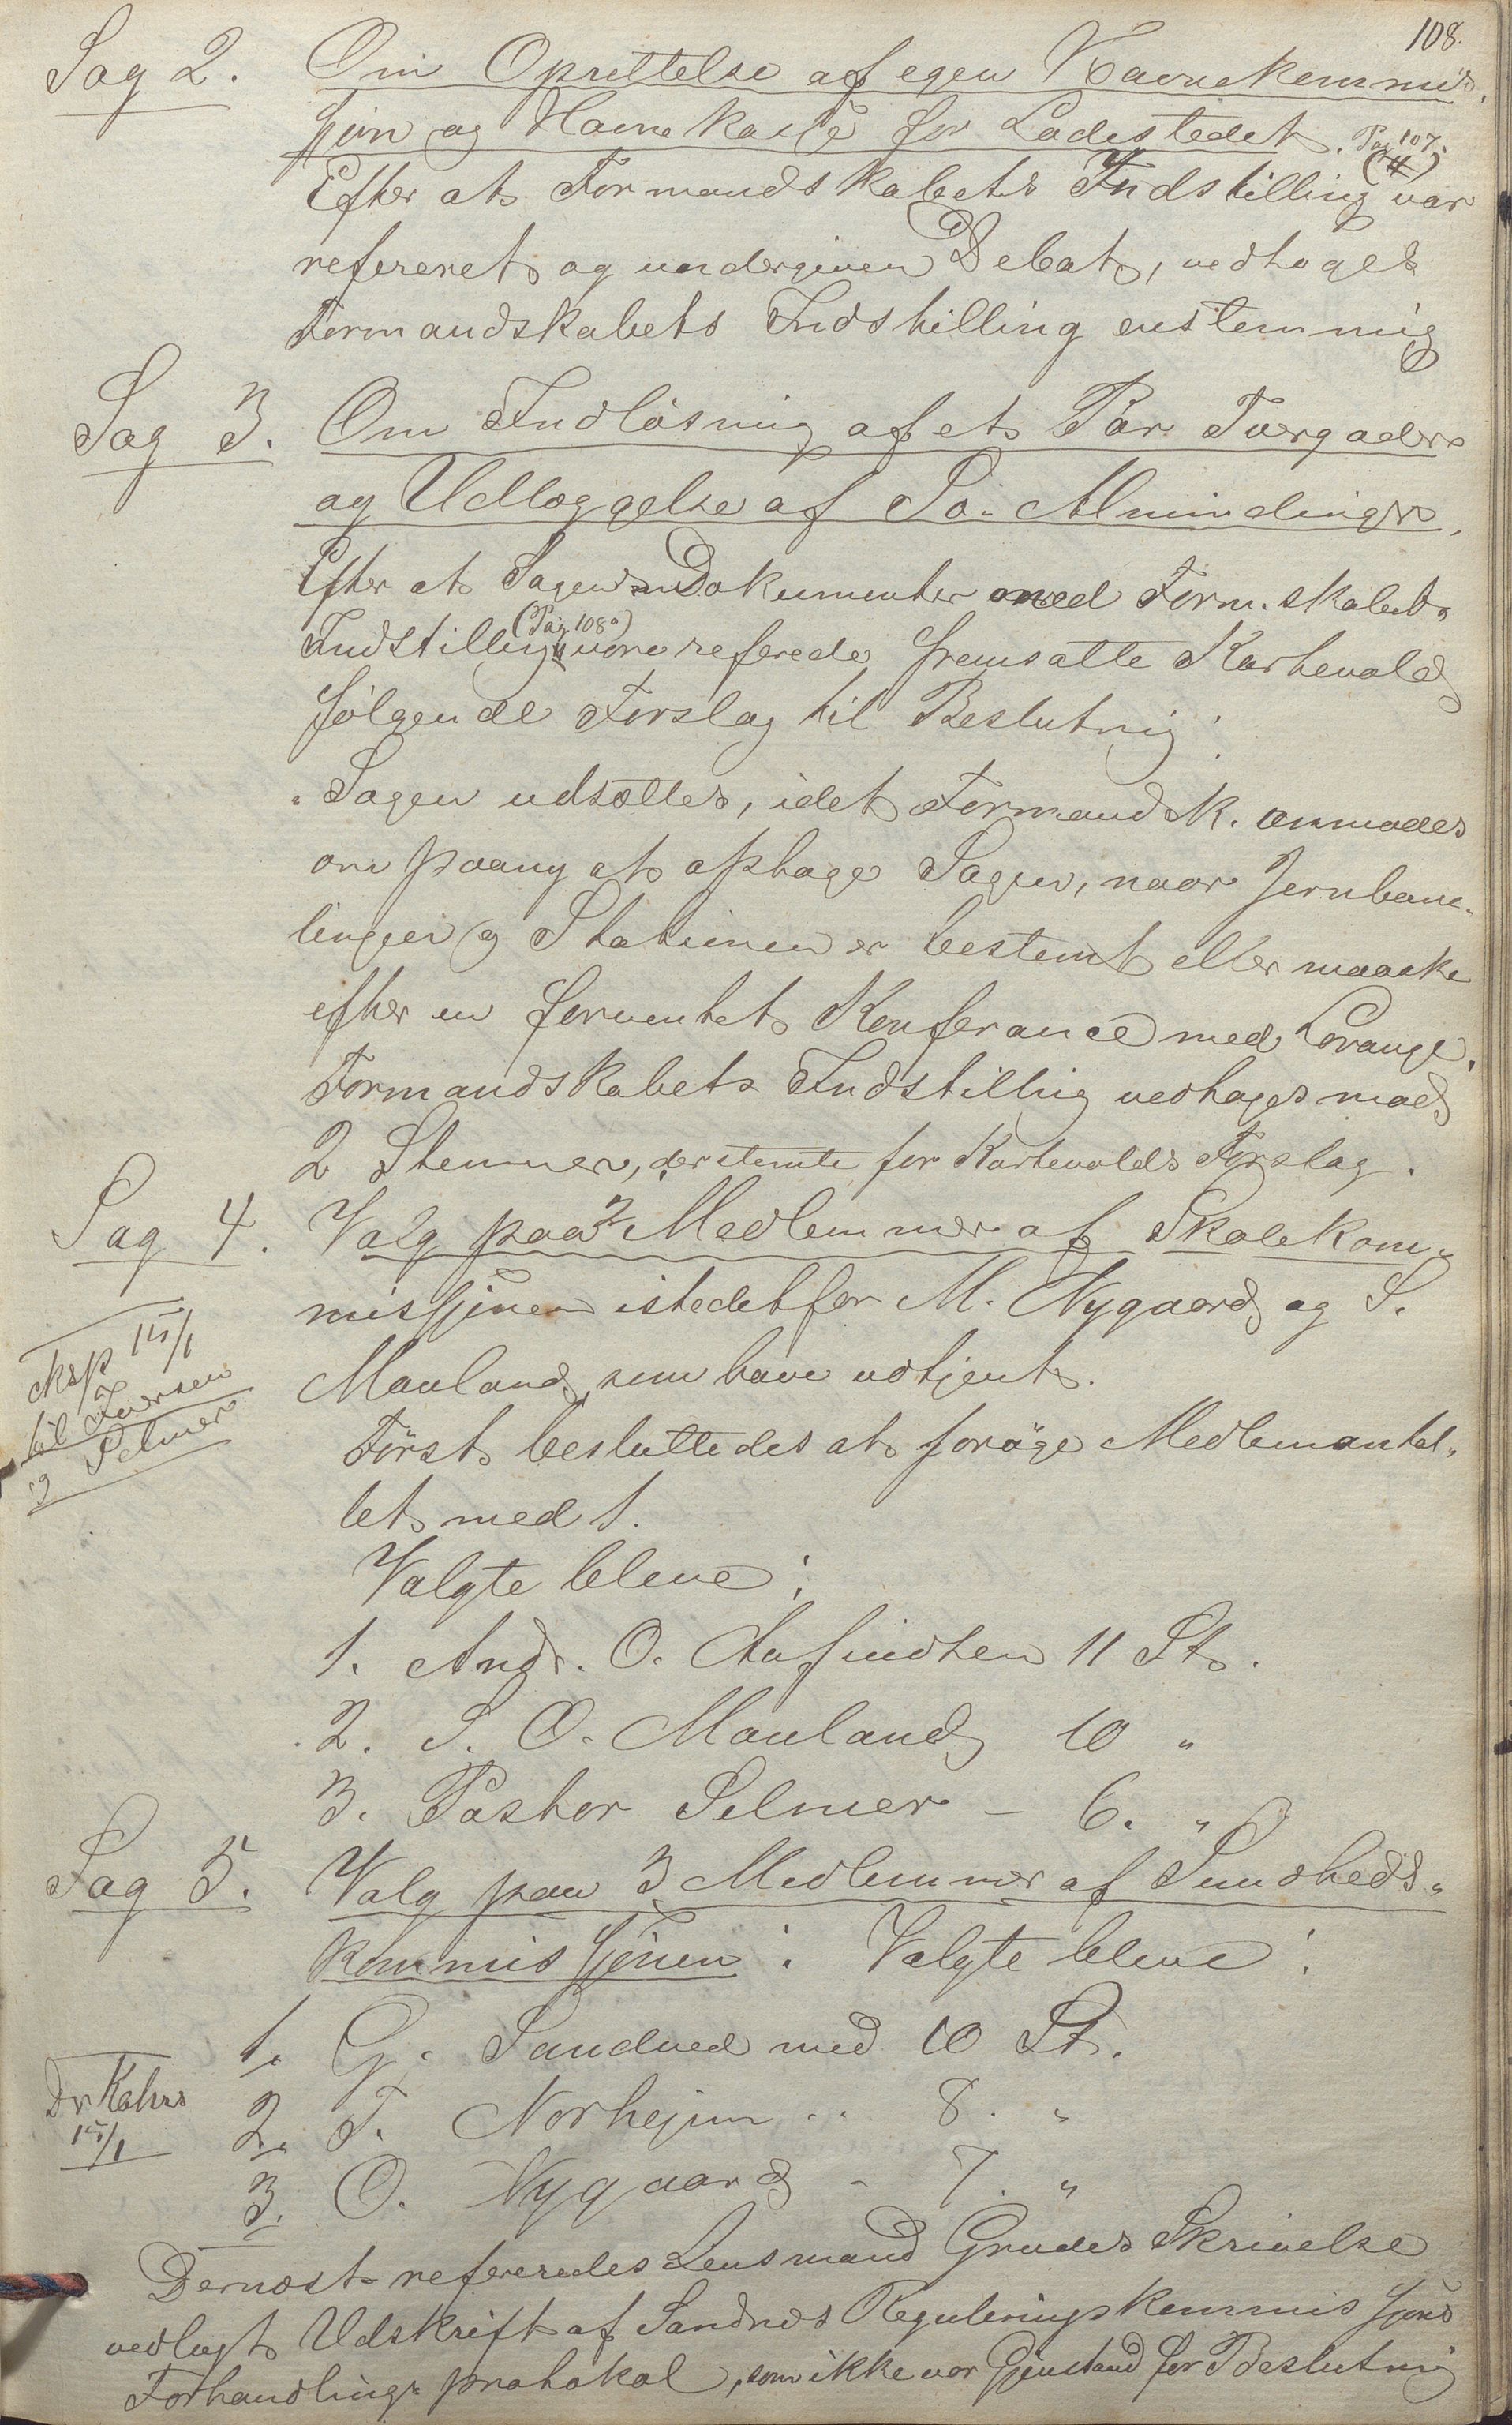 108.
Sag 2. Om Oprettelse af egen Havnekommis-
sjon og Havnekasse for Ladestedet.
Pag 107.
Efter at Formandskabets Indstilling (#) var
refereret og undergiven Debat, vedtoges
Formandskabets Indstilling enstemmig
Sag 3. Om Indløsning af et Par Tværgader
og Udlæggelse af Sø-Almindinger.
Efter at Sagens Dokumenter med Form.skabets
(Pag 108a)
Indstilling vare referede fremsatte Kartevold
følgende Forslag til Beslutning:
"Sagen udsættes, idet Formandsk. anmodes
om paany at optage Sagen, naar Jernbane-
linjen og Stationen er bestemt eller maaske
efter en forventet Konferance med Lorange.
Formandskabets Indstilling vedtages mod
2 Stemmer, der stemte for Kartevolds Forslag.
Sag 4. Valg paa 2 Medlemmer af Skolekom-
missjonen istedetfor M. Nygaard og S.
Mauland, som have udtjent.
eksp 15/1
til Iversen
og Selmer
Først besluttedes at forøge Medlemantal-
let med 1.
Valgte bleve:
1. Andr. O. 11 St.
2. S. O. Mauland 10 "
3. Pastor Selmer - 6. "
Sag 5. Valg paa 3 Medlemmer af Sundheds-
kommissjonen: Valgte bleve:
1. G. Sandved med 10 St.
Dr Kahrs
15/1
2. T. Norheim .. 8. "
3. O. Nygaard - 7. "
Dernæst refereredes Lensmand Grudes Skrivelse
vedlagt Udskrift af Sandnes Reguleringskommissjons
Forhandlings protokol, som ikke var Gjenstand for Beslutning